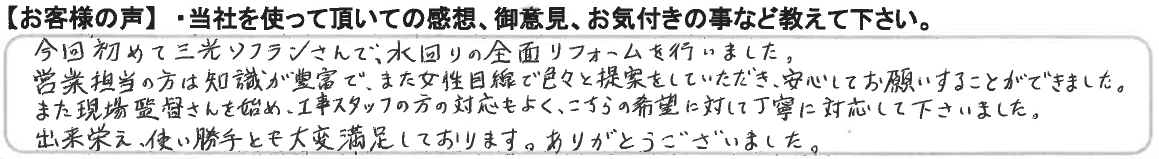 【お客様の声】・当社を使って頂いての感想、御意見、お気付きの事など教えて下さい。
今回初めて三光ソフランさんで、水回りの全面リフォームを行いました。
営業担当の方は知識が豊富で、また女性目線で色々と提案をしていただき、安心してお願いすることができました。
また現場監督さんを始め、工事スタッフの方の対応もよく、こちらの希望に対して丁寧に対応して下さいました。
出来栄え、使い勝手とも大変満足しております。ありがとうございました。